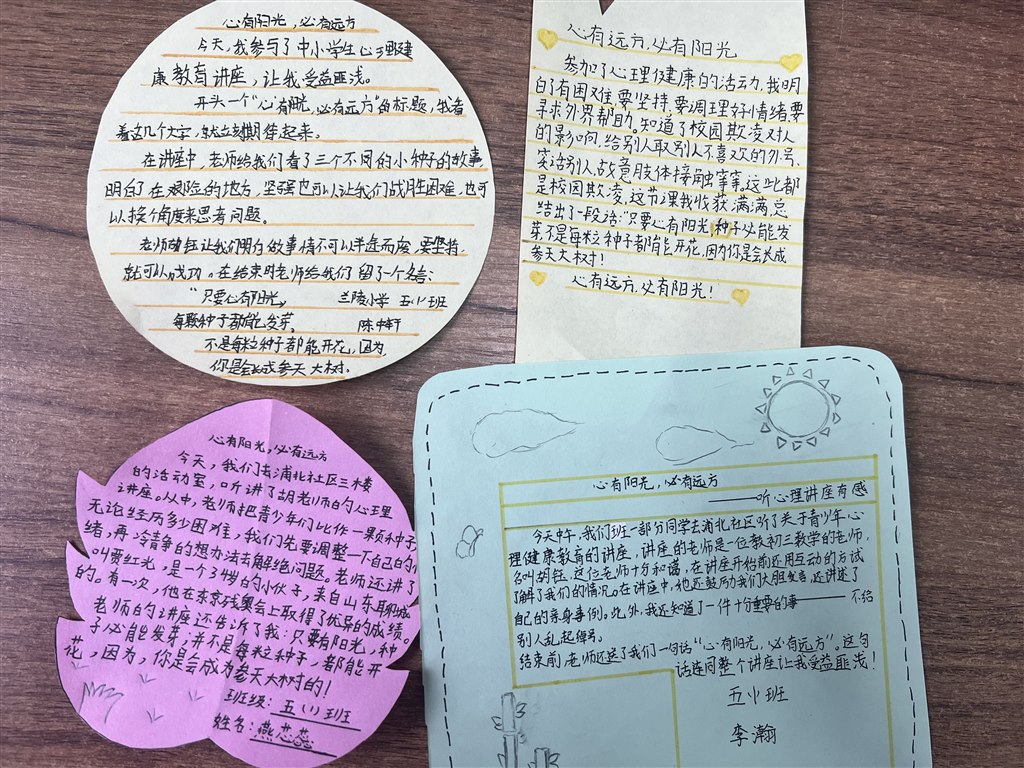 心有阳光，必有远方
今天，我参与了中小学生心理健
康教育讲座，让我受益匪浅。
开头一个“心有阳光，必有远方”的标题，我看
着这几个大字，就立刻期待起来。
在讲座中，老师给我们看了三个不同的小种子的故事
明白了在艰险的地方，坚强也可以让我们战胜困难，也可
以换个角度来思考问题。
老师动姓让我们明白做事情不可以半途而废，要坚持
就可以成功。在结束时老师给我们留了一个名言：
“只要心有阳光， 兰陵小学 五（1）班
每颗种子都能发芽， 陈中轩
不是每粒种子都能开花，因为，
你是会长成参天大树。
心有远方，必有阳光
参加了心理健康的活动，我明
白了有困难要坚持，要调理好情绪要
寻求外界帮助。知道了校园欺凌对人
的影响，给别人取别人不喜欢的外号、
笑话别人、故意肢体接触等等，这些都
是校园欺凌，这节课我收获满满，总
结出了一段话：“只要心有阳光，种子必能发
芽，不是每粒种子都能开花，因为你是会长成
参天大树！
心有远方，必有阳光！
心有阳光，必有远方
今天，我们去浦北社区三楼
的活动室，听讲了胡老师的心理
讲座。从中，老师把青少年们比作一颗种子
无论经历多少困难，我们先要调整一下自己的
绪，再冷静的想办法去解绝问题。老师还讲了
叫贾红光，是一个34岁的小伙子，来自山东聊城
的。有一次，他在东京残奥会上取得了优异的成绩。
老师的讲座还告诉了我：只要有阳光，种
子必能发芽；并不是每粒种子，都能开
花，因为，你是会成为参天大树的！
班级：五（1）班
姓名：燕芯蕊
心有阳光，必有远方
——听心理讲座有感
今天中午，我们班一部分同学去浦北社区听了关于青少年心
理健康教育的讲座，讲座的老师是一位教初三数学的老师，
名叫胡钰，这位老师十分和谐，在讲座开始前还用互动的方试
了解了我们的情况。在讲座中，他还鼓历我们大胆发言，还讲述了
自己的亲身事例。此外，我还知道了一件十分重要的事——不给
别人乱起绰号。
结束前，老师还送了我们一句话“心有阳光，必有远方”。这句
话连同整个讲座让我受益匪浅！
五（1）班
李瀚